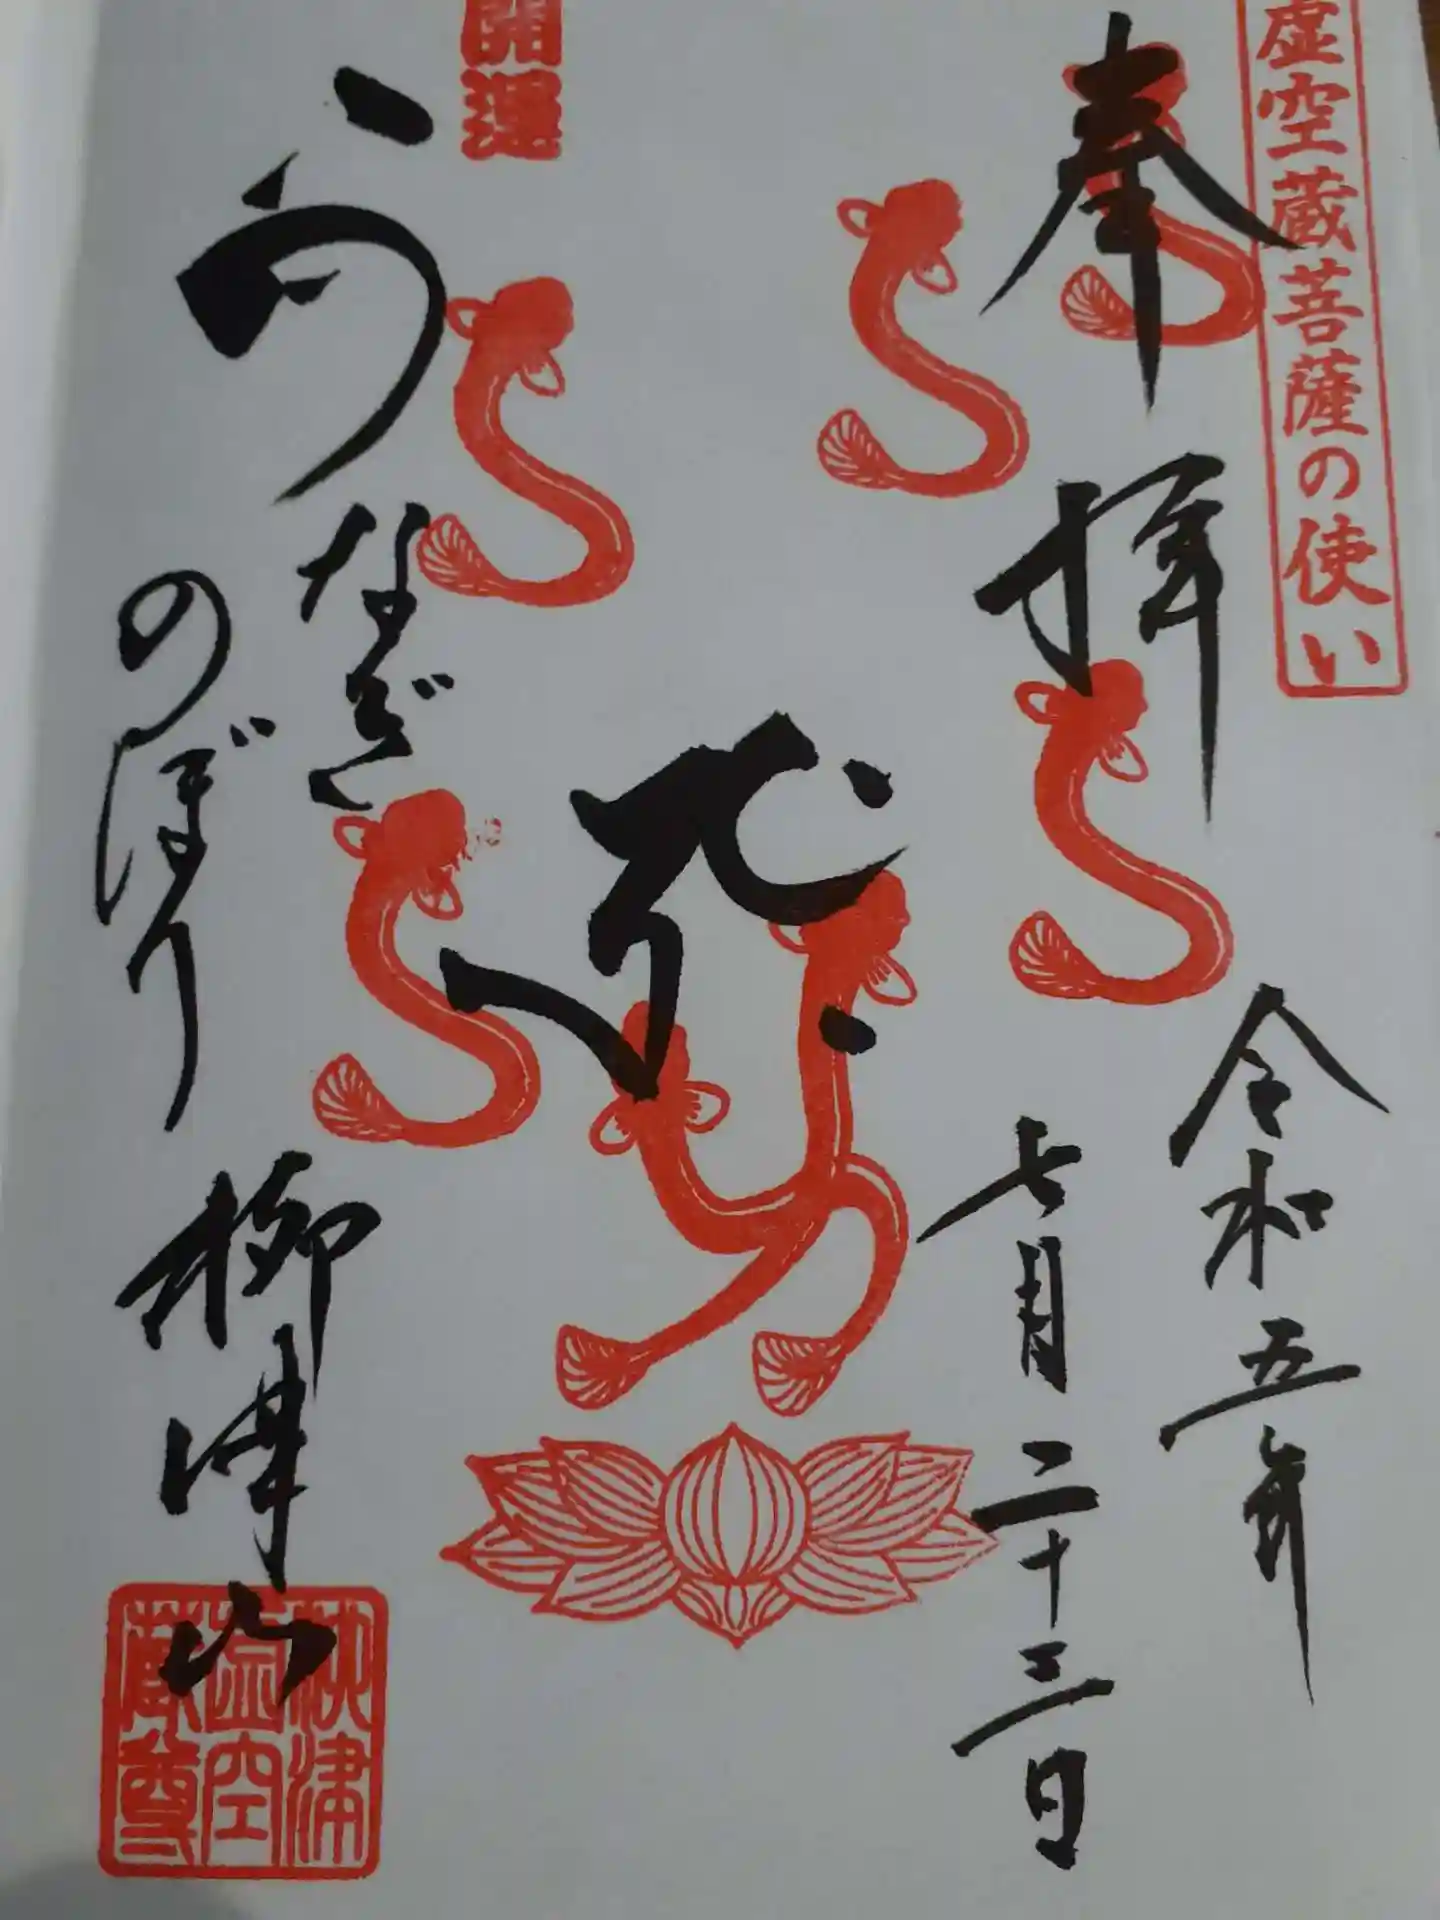 虚空蔵菩薩の使い
奉拝
令和五年
七月二十三日
開運
うなぎ
のぼり
柳津山
秋津
虚空
蔵尊